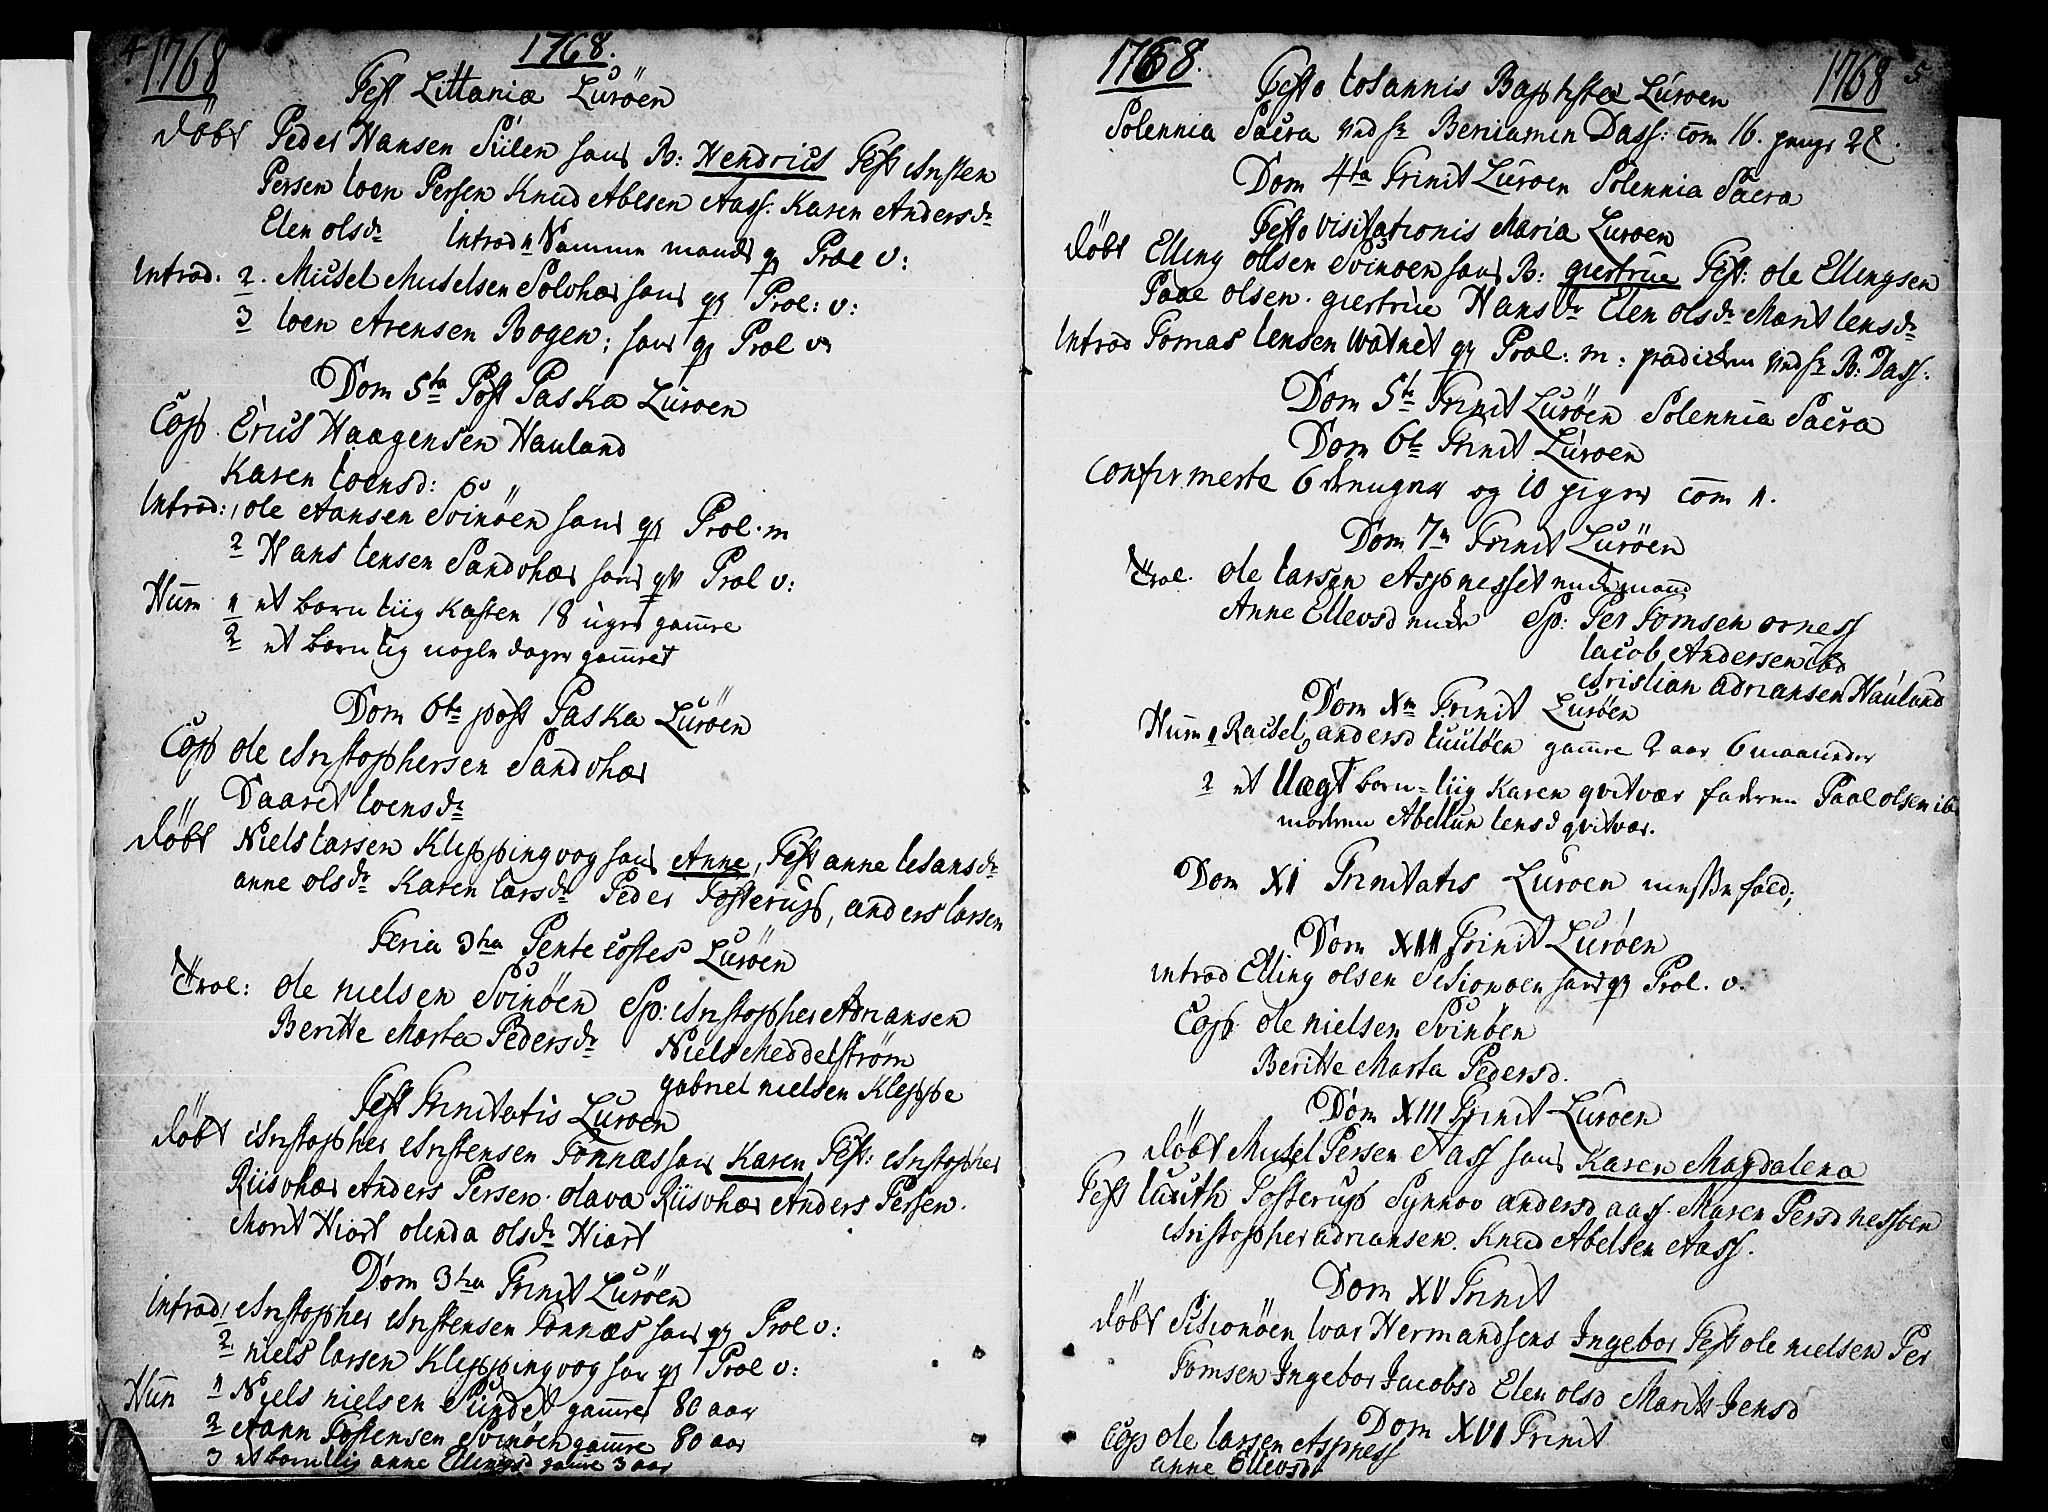 4 1768
1768.
Fest Littaniæ Luröen
döbt Peder Hansen Siilen hans B: Hendrics Test Christen
Persen Ioen Persen Knud Abelsen Aass. Karen Andersdr
Elen olsdr Introd 1 mands qv Præl v:
Introd: 2. Michel Michelsen Solvhær hans qv Præl: v:
3 Ioen Arensen Bogen; hans qv Præl v
Dom 5ta Post Paska Luroen
Cop Erics Haagensen Hauland
Karen Ioensd:
Introd: 1 ole Hansen Svinöen hans qv Præl. m
2 Hans Iensen Sandvhær hans qv Præl v:
Hum 1 et barn liig Kasten 18 uger gammel
2 et barn lig nogle dager gammelt
Dom 6te post Paska Luröen
Cop ole Christophersen Sandvhær
Daaret Ioensdr
döbt Niels Larsen Kleppingvog hans Anne, Test anne Iohansdr
anne olsdr Karen Larsdr Peder Tosterup, anders Larsen
Feria 3tia Pentecostes Luröen
Trol: ole nielsen Svinöen Sp: Christopher Adriansen
Beritte Marta Pedersdr Niels Meddelström
gabriel nielsen Kleppe
Fest Trinitatis Luroen
döbt Christopher Christensen Tonnæs hans Karen Test: Christopher
Riisvhær Anders Persen. olava Riisvhær Anders Persen.
Marit Hiort olinda olsdr Hiort
Dom 3tia Trinit Luröen
Introd: 1 Christopher Christensen Tonnæs hans qv Præl v:
2 niels Larsen Kleppingvog hans qv Præl v:
Hum 1 Niels nielsen Sundet gammel 80 aar
2 Hans Tostensen Svinöen gammel 80 aar
3 et barn liig anne Ellingsd gamle 3 aar
1768.
1768 5
Festo Iohannis Baptistæ Luroen
Solennia Sacra ved Hr Beniamin Dass: com 16. penge 28.
Dom 4ta Trinit Luroen Solennia Sacra
Festo visitationis Maria Luroen
döbt Elling olsen Svinoen hans B: giertrue Test: ole Ellingsen
Paal olsen. giertrue Hansdr Elen olsdr Marit Iensdr
Introd Tomas Iensen Watnet qv Præl: m: prædiken ved Hr B: Dass.
Dom 5te Trinit Luröen Solennia Sacra
Dom 6te Trinit Luroen
Confirmerte 6 drenger og 10 piger com 1.
Dom 7m Trinit Luröen
Trol. ole Larsen Aspnesset enckemand
Anne Ellevsd encke Sp: Per Tomsen orness
Iacob Andersen ibid
Christian Adriansen Hauland
Dom Xm Trinit Luröen
Hum 1 Rachel andersd gammel 2 aar 6 maaneder
2 et Uægt barn-liig Karen qvitvær faderen Paal olsen ib
moderen Abellun Iensd qvitvær.
Dom XI Trinitatis Luroen messefald;
Dom XII Trinit Luröen
introd Elling olsen Schionoen hans qv Præl. v.
Cop ole nielsen Svinöen
Beritte Marta Pedersd.
Dom XIII Trinit Luroen
döbt Michel Persen Aass hans Karen Magdalena
Test Tosterup Synnov andersd aass. Maren Persd nessoen
Christopher adriansen. Knud Abelsen Aass.
Dom XV Trinit
döbt Schionöen Ivar Hermandsens Ingebor Test ole nielsen Per
Tomsen Ingebor Jacobsd Elen olsd Marits Jensd
Dom XVI Trinit
Cop ole Larsen Aspness
anne Ellevsdr